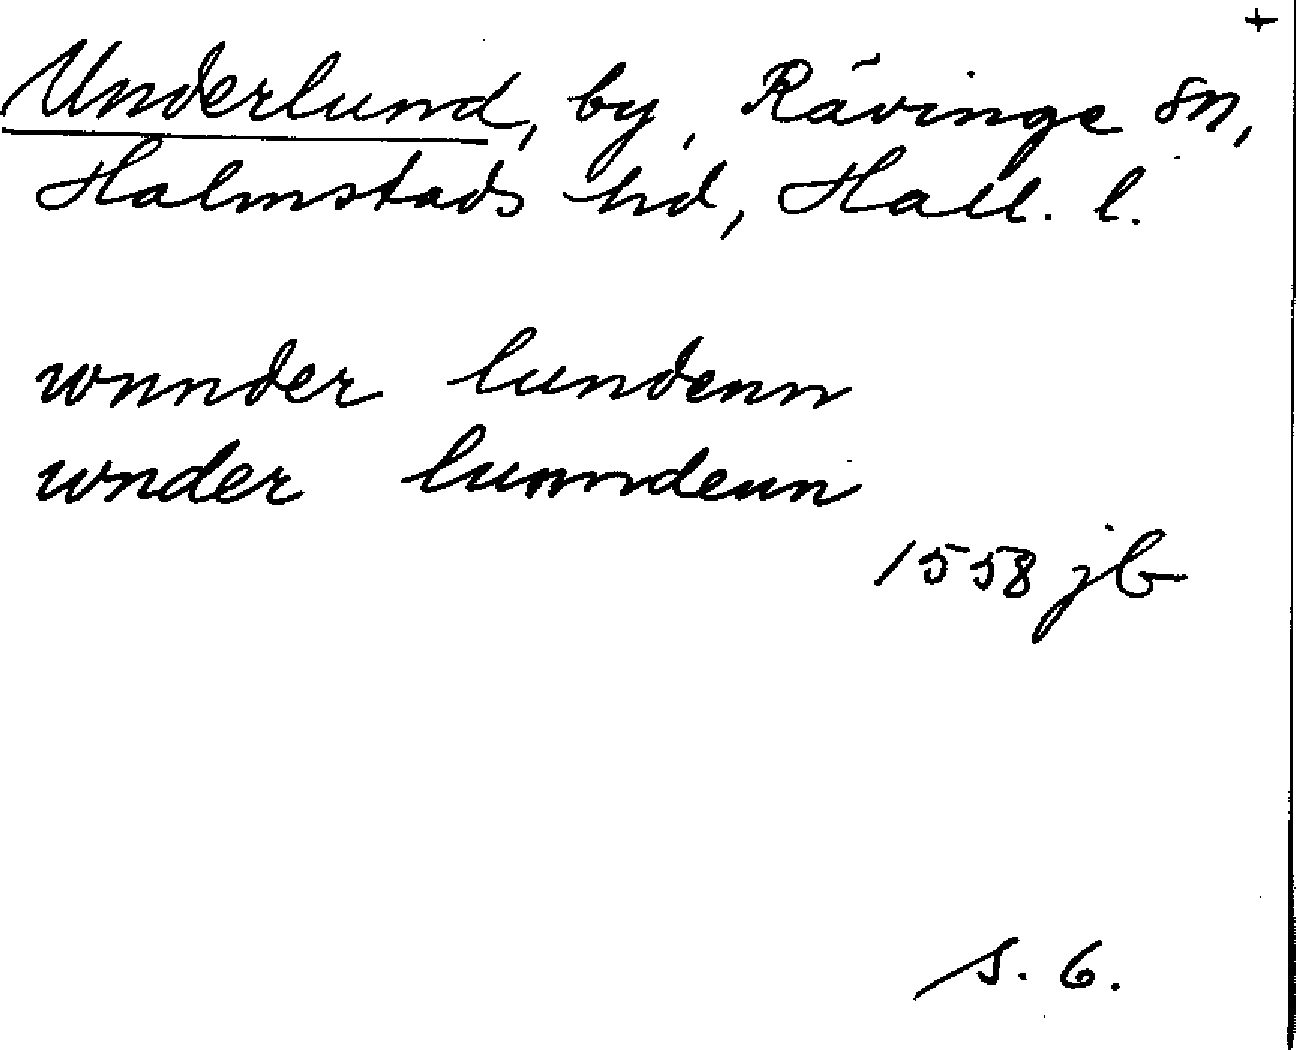 +
Underlund, by, Rävinge sn,
Halmstads hd, Hall. l.
wnnder lundenn
wnder lunndenn
1558 jb
s. 6.